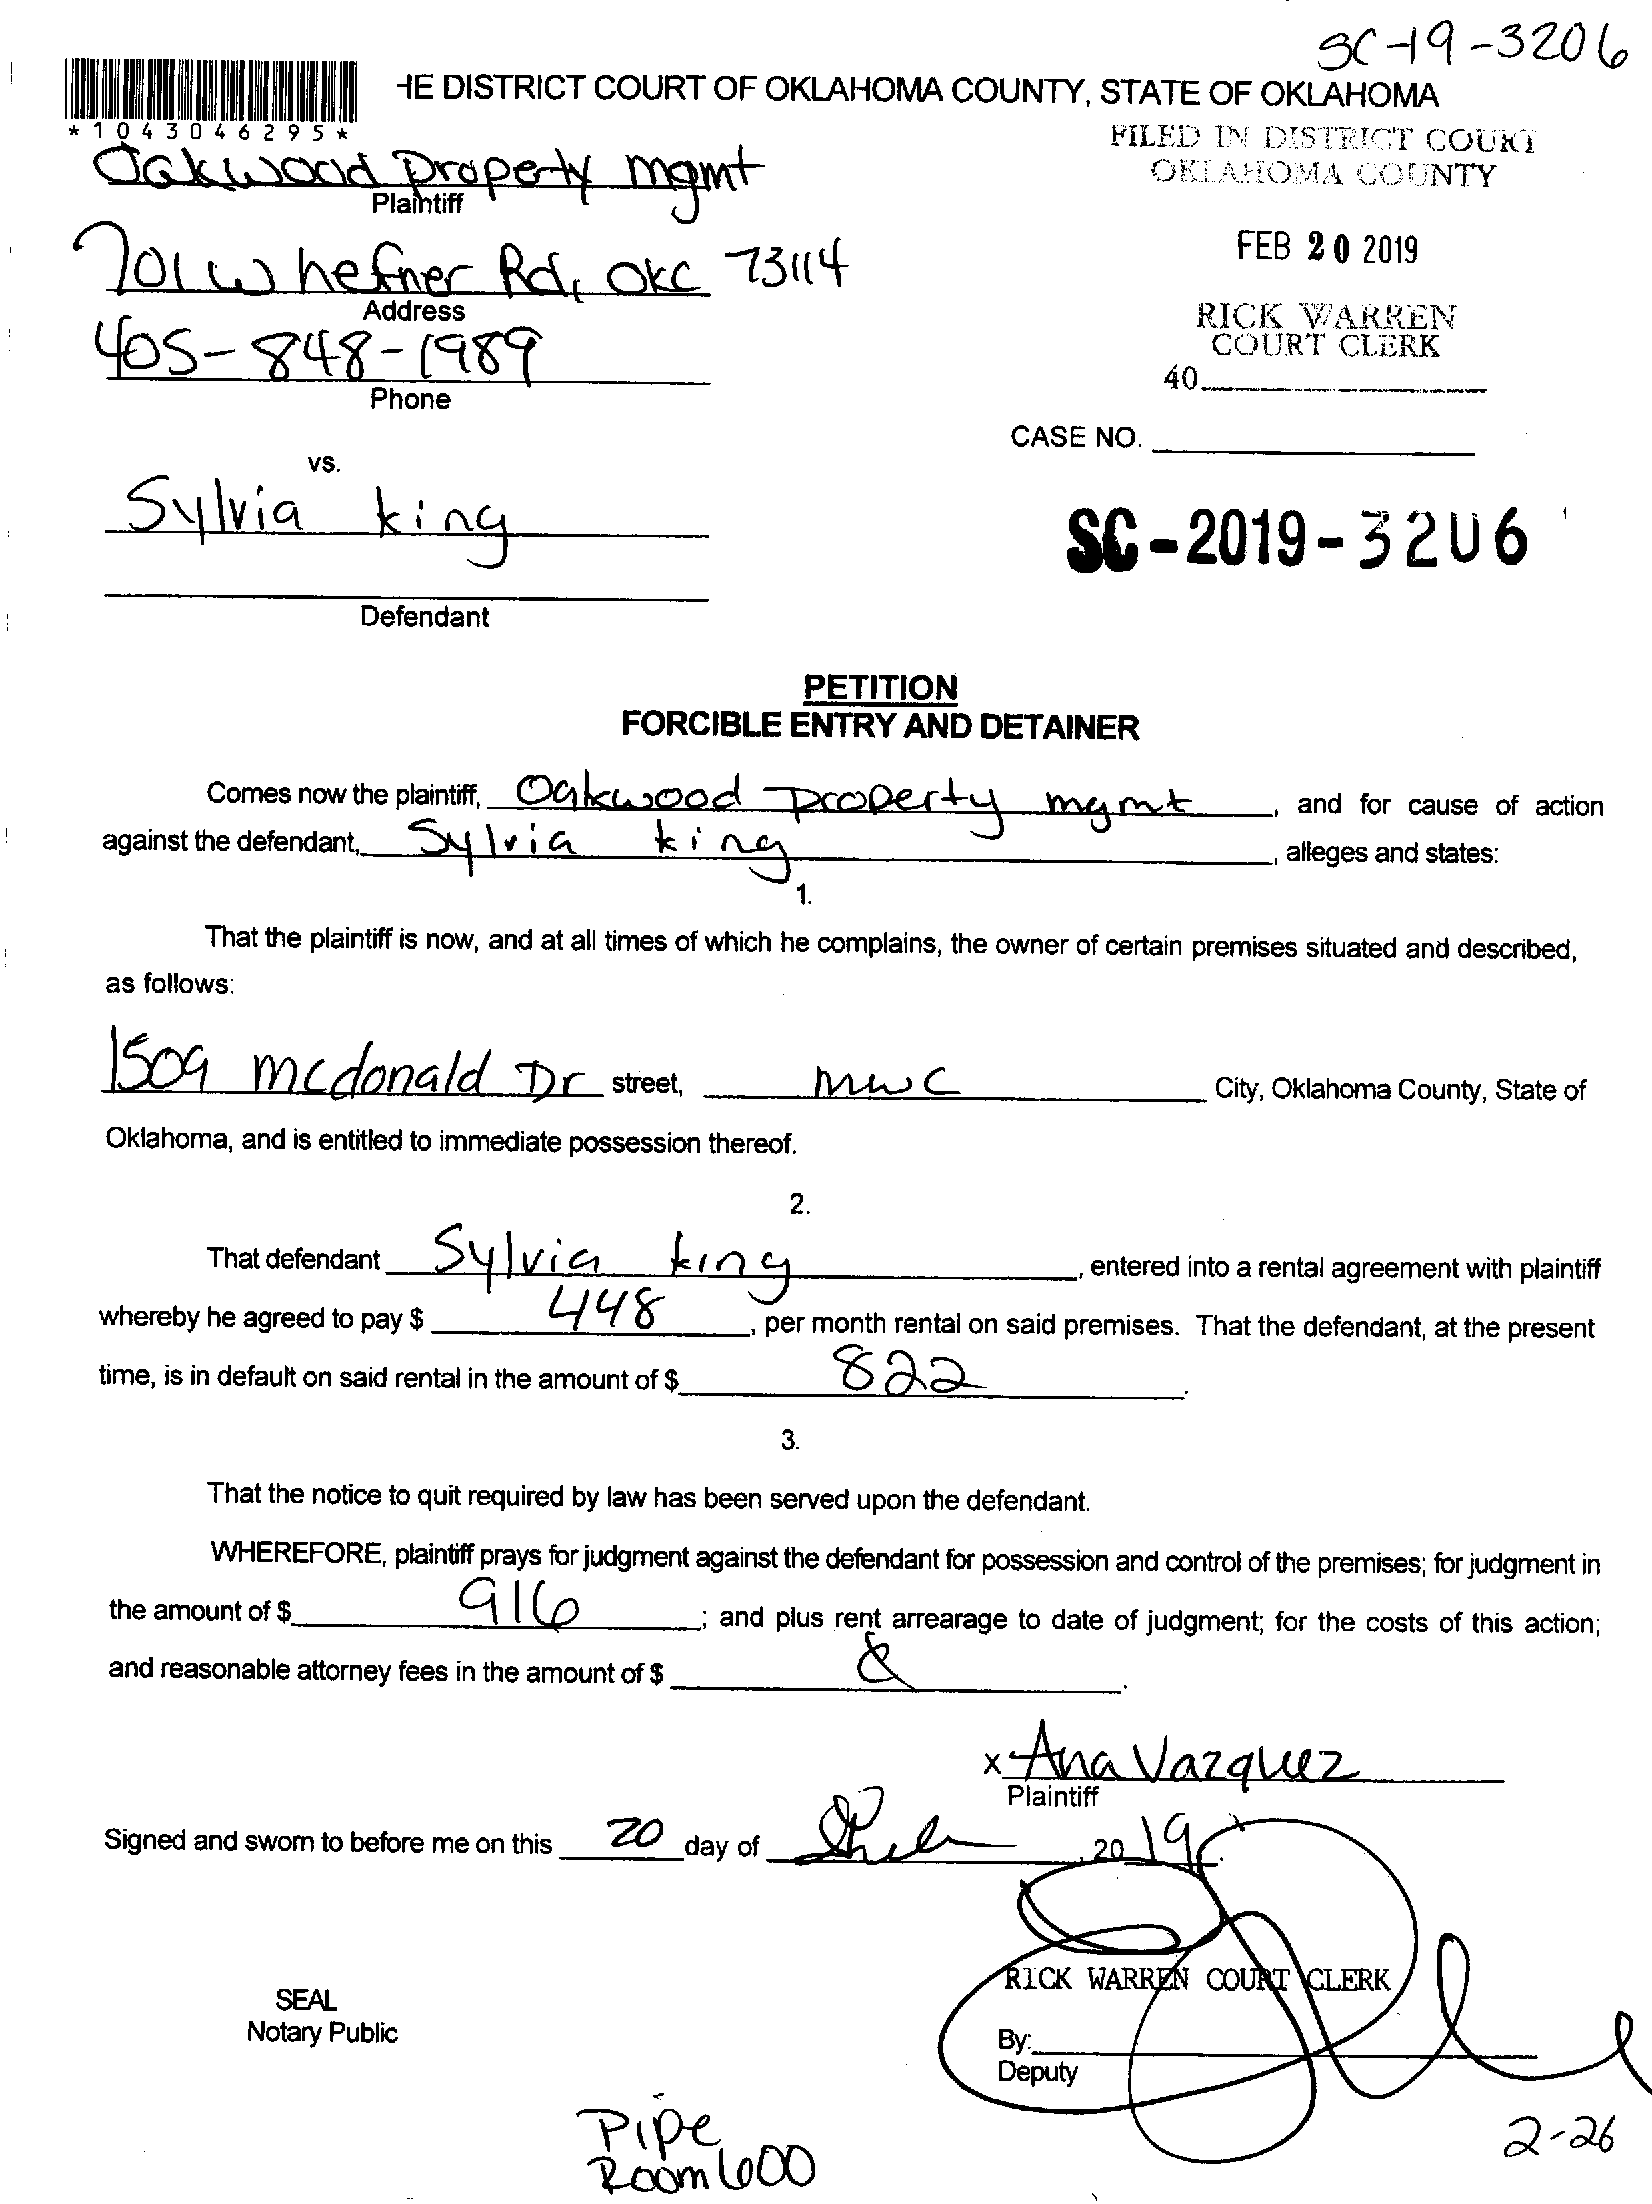 SC-19-3206
HE DISTRICT COURT OF OKLAHOMA COUNTY, STATE OF OKLAHOMA
*1043046295*
FILED IN DISTRICT COURT
OKLAHOMA COUNTY
Oakwood property mgmt
Plaintiff
FEB 20 2019
701 W hefner Rd, OKC 73114
Address
RICK WARREN
COURT CLERK
405-848-1989
Phone
40
CASE NO.
vs.
Sylvia king
SC-2019-3206
Defendant
PETITION
FORCIBLE ENTRY AND DETAINER
Comes now the plaintiff, Oakwood property mgmt, and for cause of action
against the defendant, Sylvia king, alleges and states:
1.
That the plaintiff is now, and at all times of which he complains, the owner of certain premises situated and described,
as follows:
1509 mcdonald Dr street, mwc City, Oklahoma County, State of
Oklahoma, and is entitled to immediate possession thereof.
2.
That defendant Sylvia king, entered into a rental agreement with plaintiff
whereby he agreed to pay $ 448, per month rental on said premises. That the defendant, at the present
time, is in default on said rental in the amount of $ 822.
3.
That the notice to quit required by law has been served upon the defendant.
WHEREFORE, plaintiff prays for judgment against the defendant for possession and control of the premises; for judgment in
the amount of $ 916; and plus rent arrearage to date of judgment; for the costs of this action;
and reasonable attorney fees in the amount of $
x Ana Vazquez
Plaintiff
Signed and sworn to before me on this 20 day of Feb, 2019.
RICK WARREN COURT CLERK
SEAL
Notary Public
By:
Deputy
Pipe
Room 600
2-26